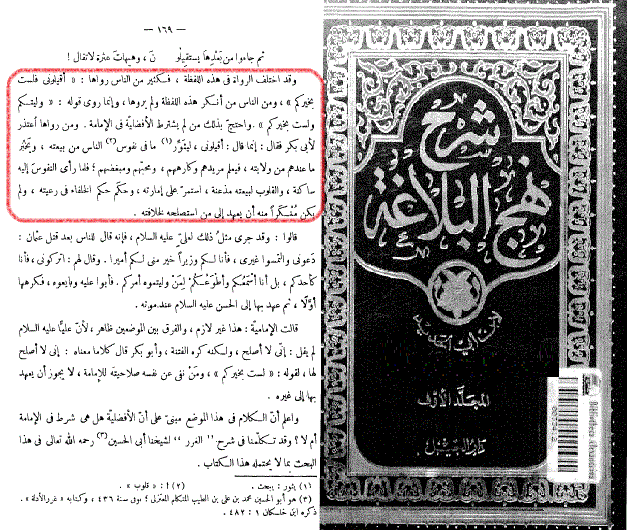 — ١٦٩ —
ثم جاءوا من بَعْدِهَا يستقيلو نَ ، وهيهات عثرة لا تقال !
وقد اختلف الرواة فى هذه اللفظة ، فكثير من الناس رواها : « أقيلونى فلست
بخيركم » ، ومن الناس من أنكر هذه اللفظة ولم يروها ، وإنما روى قوله : « وليتكم
ولست بخيركم » . واحتجّ بذلك من لم يشترط الأفضليّة فى الإمامة . ومن رواها اعتذر
لأبى بكر فقال : إنما قال : أقيلونى ، ليثوِّر (١) ما فى نفوس (٢) الناس من بيعته ، ويَخْبُر
ما عندهم من ولايته ، فيعلم مريدهم وكارههم ، ومحبّهم ومبغضهم ؛ فلما رأى النفوس إليه
ساكنة ، والقلوب لبيعته مذعنة ، استمرّ على إمارته ، وحكم حكم الخلفاء فى رعيته ، ولم
يكن مُنْكَراً منه أن يعهد إلى من استصلحه لخلافته .
قالوا : وقد جرى مثلُ ذلك لعلىّ عليه السلام ، فإنه قال للناس بعد قتل عثمان :
دَعونى والتمسوا غيرى ، فأنا لكم وزيراً خير منى لكم أميرا . وقال لهم : اتركونى ، فأنا
كأحدكم ، بل أنا أسْمَعُكم وأطْوَعُكُمْ لِمَنْ وليتموه أمركم . فأبوا عليه وبايعوه ، فكرهها
أوّلًا ، ثم عهد بها إلى الحسن عليه السلام عند موته .
قالت الإماميّة : هذا غير لازم ، والفرق بين الموضعين ظاهر ، لأنّ عليًّا عليه السلام
لم يقل : إنّى لا أصلح ، ولكنه كره الفتنة ، وأبو بكر قال كلاما معناه : إنى لا أصلح
لها ، لقوله : « لست بخيركم » ، ومَنْ نفى عن نفسه صلاحيته للإمامة ، لا يجوز أن يعهد
بها إلى غيره .
واعلم أنّ الكلام فى هذا الموضع مبنىّ على أنّ الأفضليّة هل هى شرط فى الإمامة
أم لا ؟ وقد تكلّمنا فى شرح " الغرر " لشيخنا أبى الحسين (٣) رحمه الله تعالى فى هذا
البحث بما لا يحتمله هذا الكتاب .
(١) يثور : يبحث . (٢) ا : « قلوب » .
(٣) هو أبو الحسين محمد بن على بن الطيب المتكلم المعتزلى ؛ توفى سنة ٤٣٦ ، وكتابه « غرر الأدلة » .
ذكره ابن خلكان ١ : ٤٨٢ .
شرح
نهج البلاغة
لابن أبى الحديد
المجلد الأول
دار الجيل